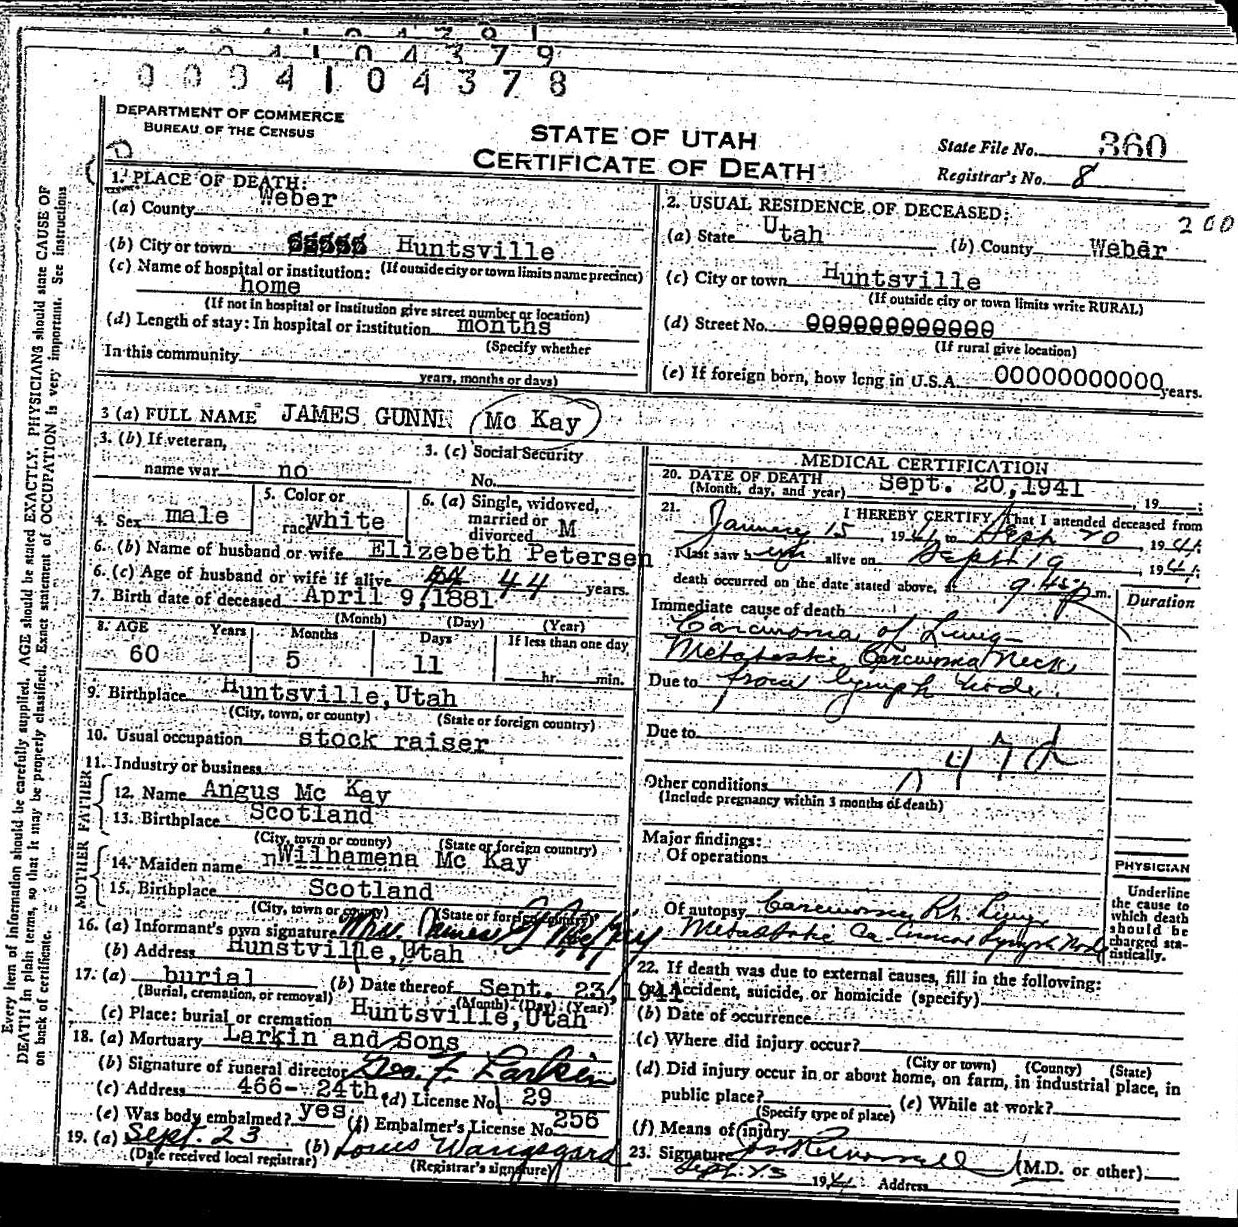 0004104378
DEPARTMENT OF COMMERCE
BUREAU OF THE CENSUS
STATE OF UTAH
CERTIFICATE OF DEATH
State File No. 360
Registrar's No. 8
1. PLACE OF DEATH:
(a) County Weber
(b) City or town Huntsville
(c) Name of hospital or institution: (If outside city or town limits name precinct)
home
(If not in hospital or institution give street number or location)
(d) Length of stay: In hospital or institution months
(Specify whether
In this community
years, months or days)
2. USUAL RESIDENCE OF DECEASED:
200
(a) State Utah (b) County Weber
(c) City or town Huntsville
(If outside city or town limits write RURAL)
(d) Street No. 000000000000
(If rural give location)
(e) If foreign born, how long in U.S.A. 00000000000 years.
3 (a) FULL NAME JAMES GUNN Mc Kay
3. (b) If veteran,
name war no
3. (c) Social Security
No.
4. Sex male
5. Color or
race white
6. (a) Single, widowed,
married or
divorced M
6. (b) Name of husband or wife Elizebeth Petersen
6. (c) Age of husband or wife if alive 44 years.
7. Birth date of deceased April 9, 1881
(Month) (Day) (Year)
8. AGE Years Months Days If less than one day
60 5 11 hr. min.
9. Birthplace Huntsville, Utah
(City, town, or county) (State or foreign country)
10. Usual occupation stock raiser
11. Industry or business
FATHER
12. Name Angus Mc Kay
13. Birthplace Scotland
(City, town or county) (State or foreign country)
MOTHER
14. Maiden name Wilhamena Mc Kay
15. Birthplace Scotland
(City, town or county) (State or foreign country)
16. (a) Informant's own signature Mrs. James G McKay
(b) Address Hunstville, Utah
17. (a) burial (b) Date thereof Sept. 23, 1941
(Burial, cremation, or removal) (Month) (Day) (Year)
(c) Place: burial or cremation Huntsville, Utah
18. (a) Mortuary Larkin and Sons
(b) Signature of funeral director Geo. F. Larkin
(c) Address 466- 24th (d) License No. 29
(e) Was body embalmed? yes (f) Embalmer's License No. 256
19. (a) Sept. 23 (b) Louis Wangsgard
(Date received local registrar) (Registrar's signature)
MEDICAL CERTIFICATION
20. DATE OF DEATH
(Month, day, and year) Sept. 20, 1941, 19
21. I HEREBY CERTIFY That I attended deceased from
January 15, 1941 to Sept 20 1941
I last saw him alive on Sept 19 1941
death occurred on the date stated above, at 9 45 p m.
Duration
Immediate cause of death
Carcinoma of Lung -
Metastatic Carcinoma Neck
Due to from lymph node.
Due to
47d
Other conditions
(Include pregnancy within 3 months of death)
Major findings:
Of operations
Of autopsy Carcinoma Rt. Lung
Metastatic Ca Lymph Node
PHYSICIAN
Underline
the cause to
which death
should be
charged sta-
tistically.
22. If death was due to external causes, fill in the following:
(a) Accident, suicide, or homicide (specify)
(b) Date of occurrence
(c) Where did injury occur?
(City or town) (County) (State)
(d) Did injury occur in or about home, on farm, in industrial place, in
public place? (e) While at work?
(Specify type of place)
(f) Means of injury
23. Signature (M.D. or other)
Sept. 23 1941 Address
Every item of information should be carefully supplied. AGE should be stated EXACTLY. PHYSICIANS should state CAUSE OF
DEATH in plain terms, so that it may be properly classified. Exact statement of OCCUPATION is very important. See instructions
on back of certificate.